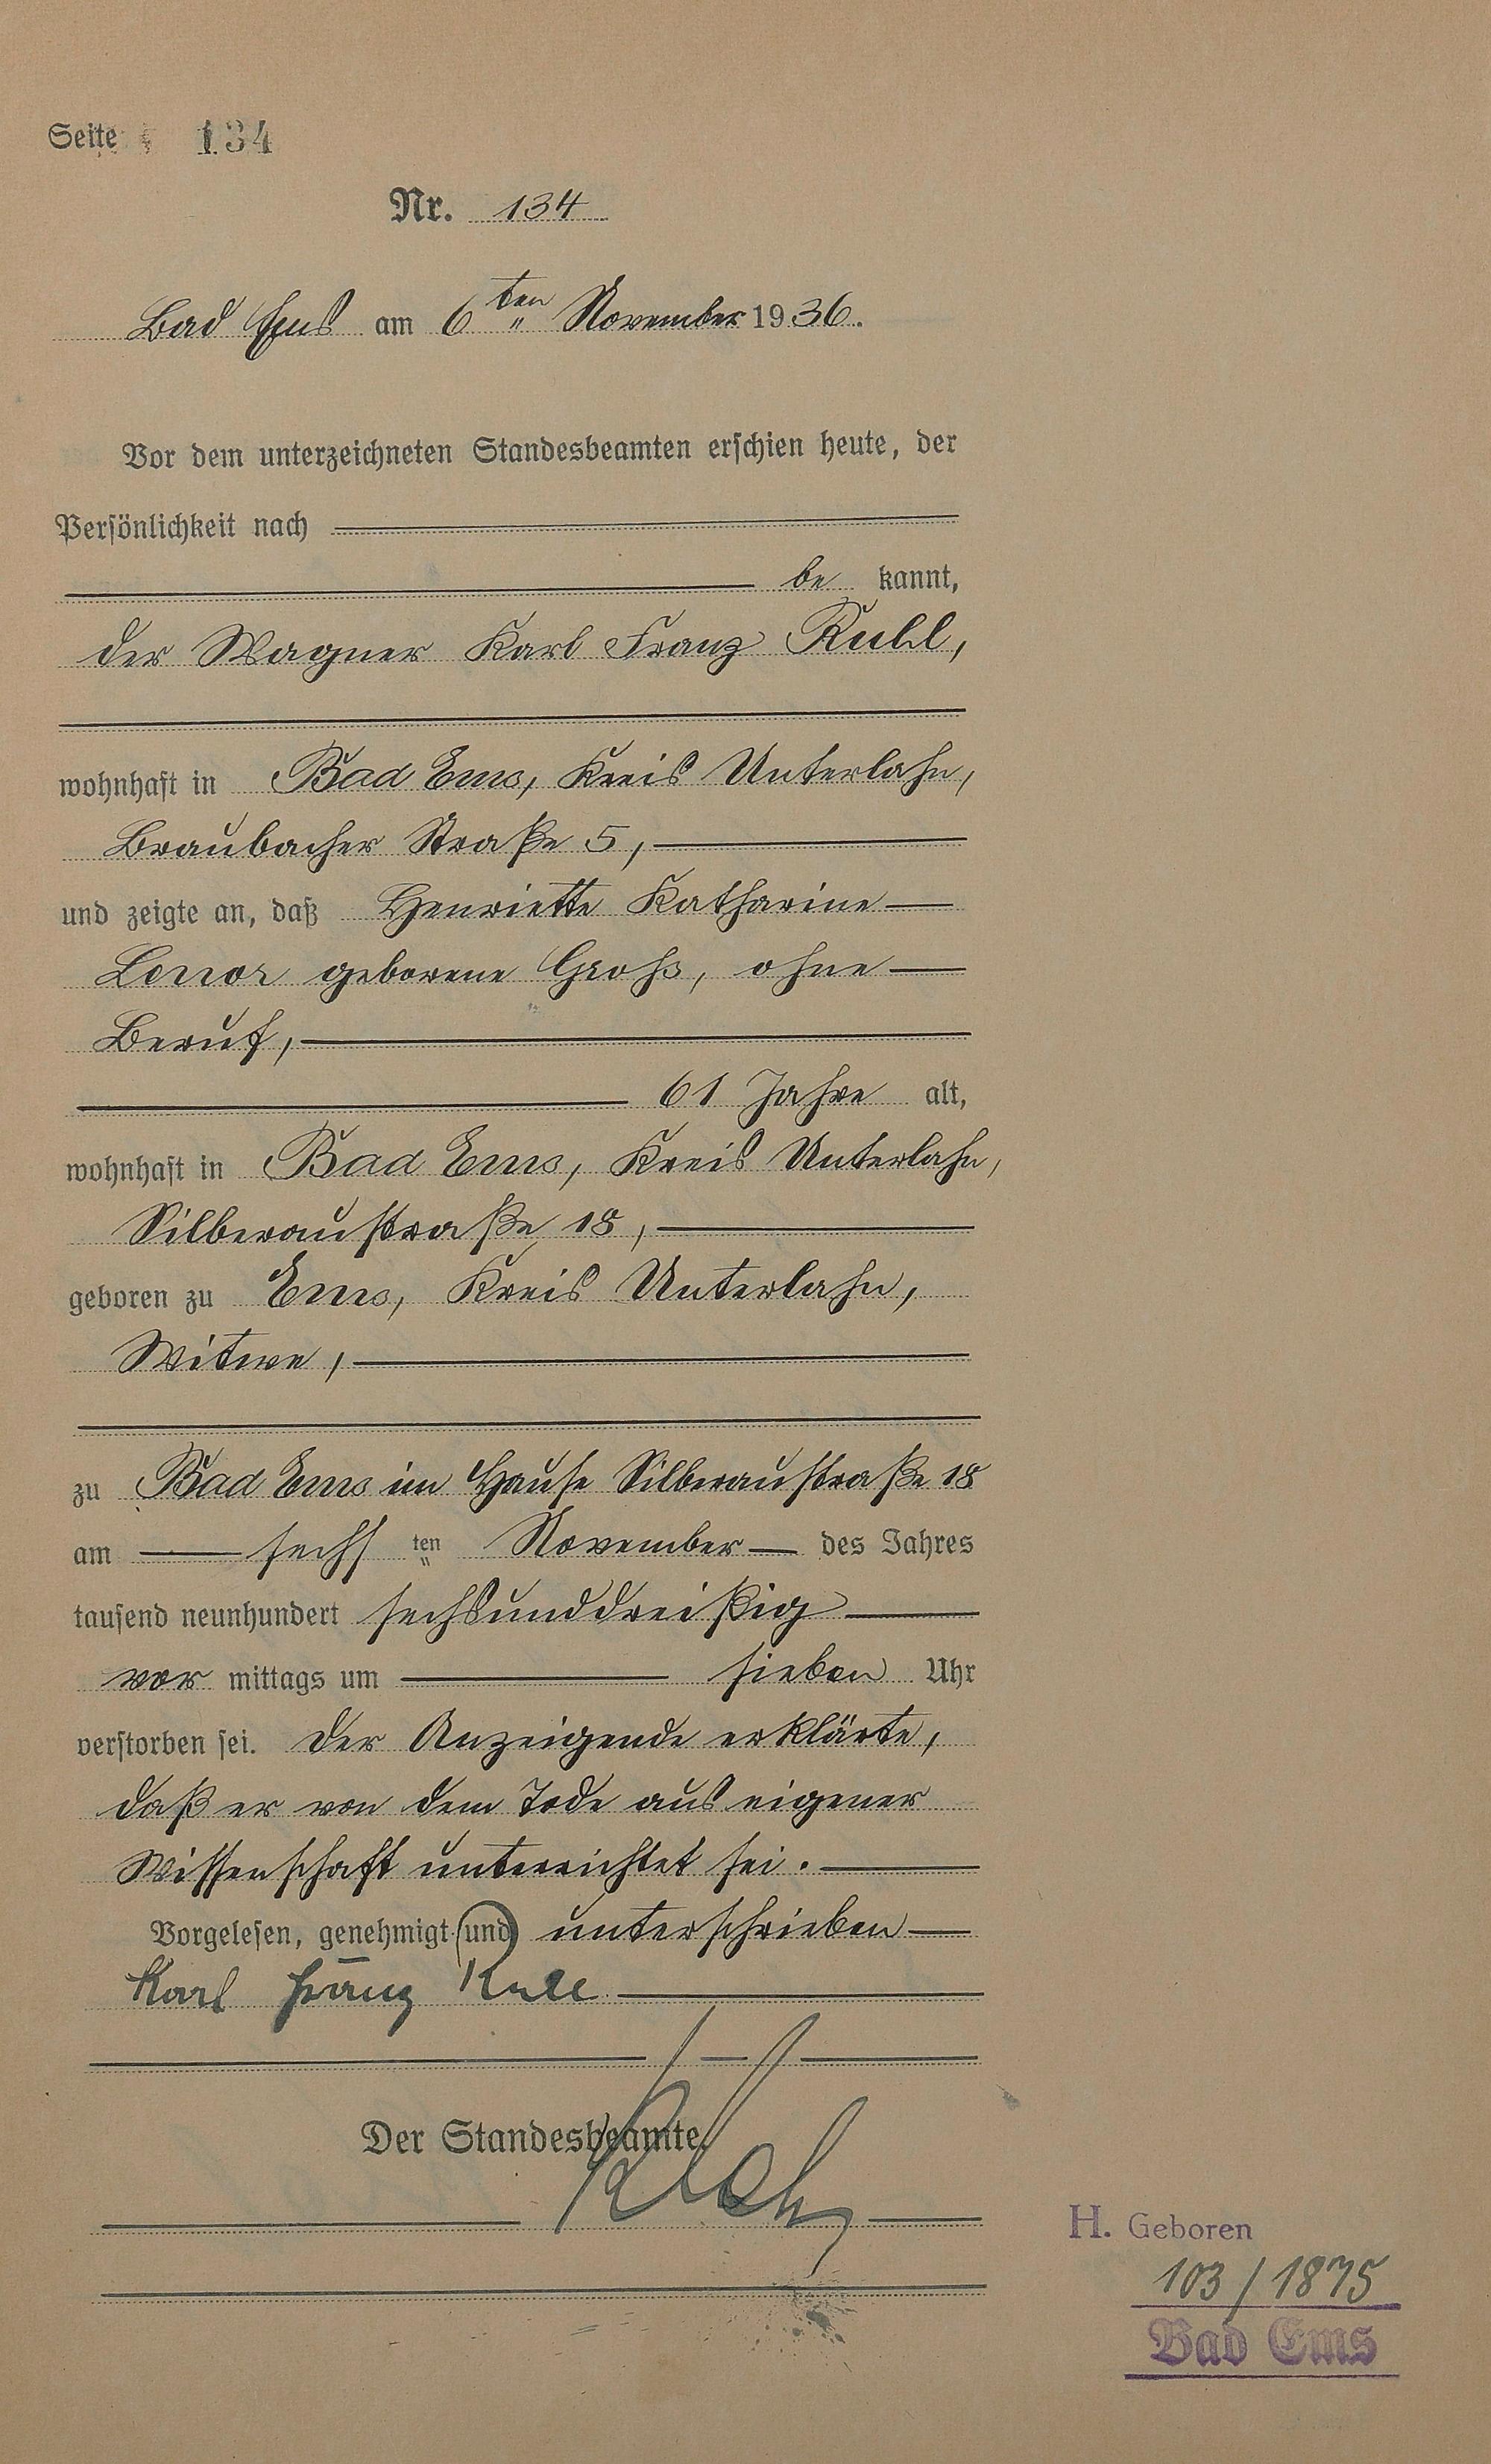 Seite 134
Nr. 134
Bad Ems am 6ten November 1936.
Vor dem unterzeichneten Standesbeamten erschien heute, der
Persönlichkeit nach
be kannt,
der Wagner Karl Franz Kull,
wohnhaft in Bad Ems, Kreis Unterlahn,
Braubacher Straße 5,
und zeigte an, daß Henriette Katharine
geborene Groß, ohne
Beruf,
61 Jahre alt,
wohnhaft in Bad Ems, Kreis Unterlahn,
Silberaustraße 18,
geboren zu Ems, Kreis Unterlahn,
Witwe,
zu Bad Ems im Hause Silberaustraße 18
am sechsten November des Jahres
tausend neunhundert sechsunddreißig
vor mittags um sieben Uhr
verstorben sei. Der Anzeigende erklärte,
daß er von dem Tode aus eigener
Wissenschaft unterrichtet sei.
Vorgelesen, genehmigt (und) unterschrieben
Karl Franz Kull
Der Standesbeamte.
H. Geboren
103/1875
Bad Ems